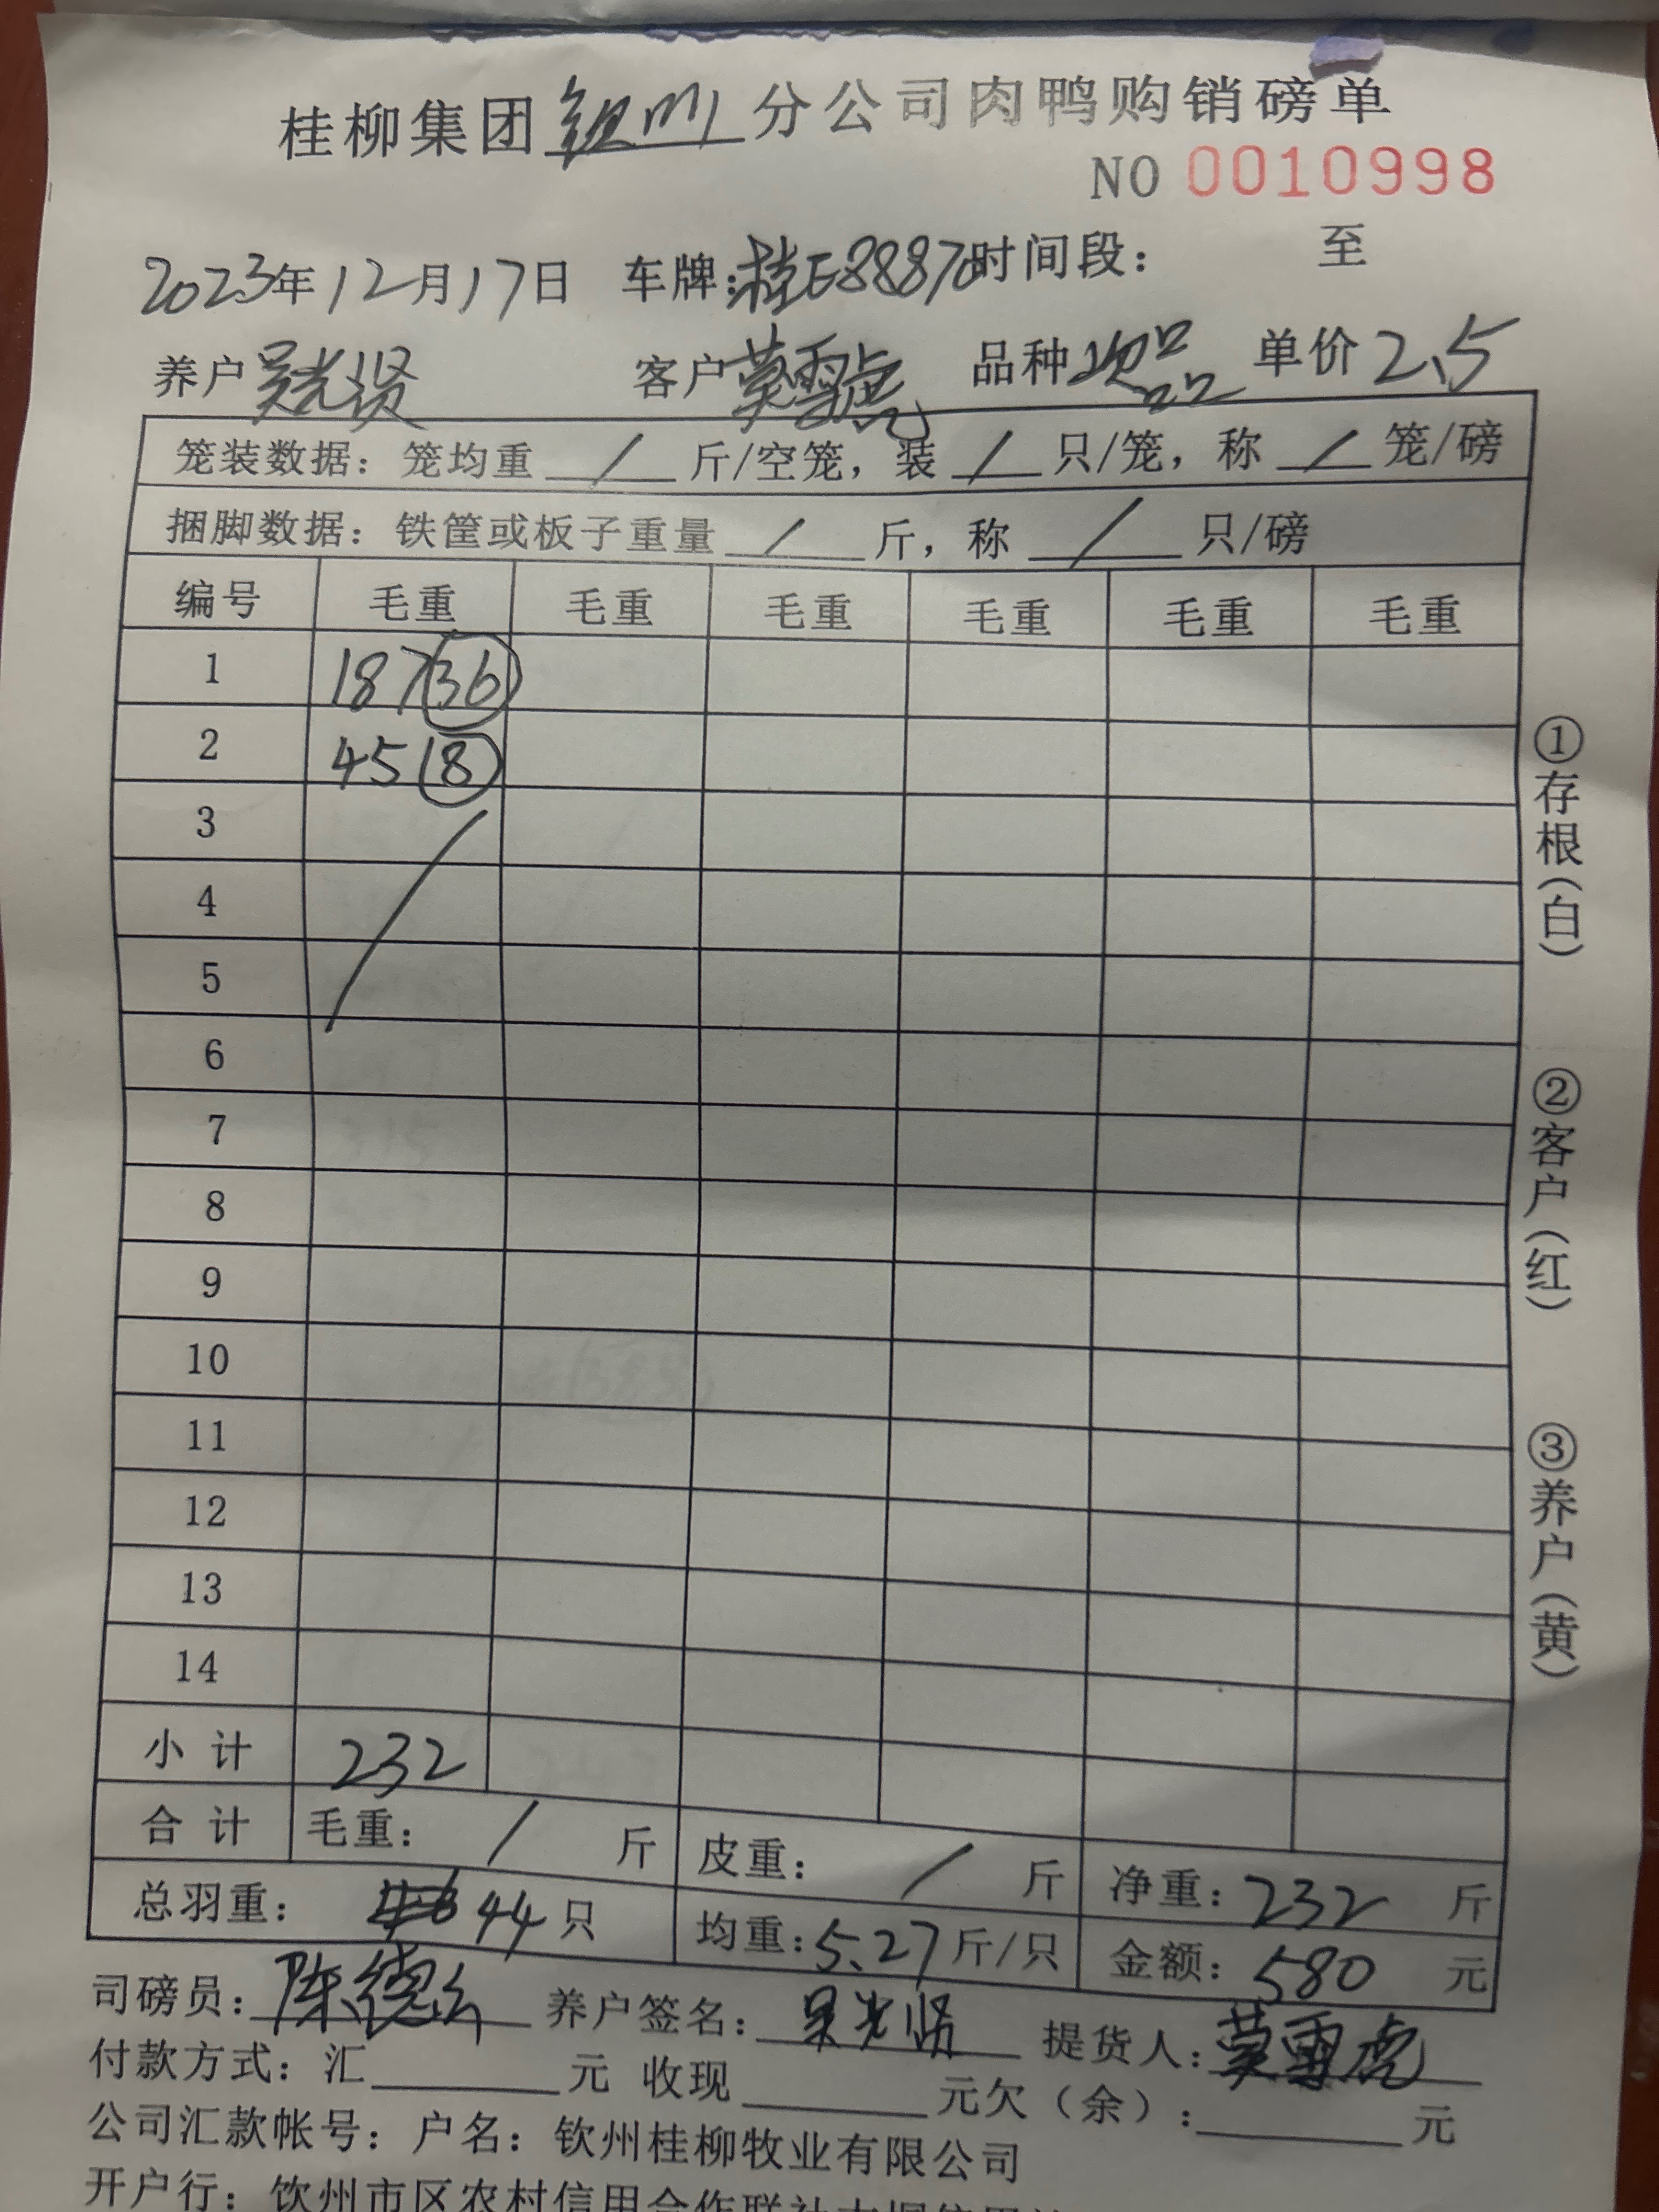 桂柳集团钦州分公司肉鸭购销磅单
NO 0010998
2023年12月17日 车牌:桂E88870时间段: 至
养户吴光贤 客户莫雪虎 品种次品 单价2.5
笼装数据：笼均重 / 斤/空笼，装 / 只/笼，称 / 笼/磅
捆脚数据：铁筐或板子重量 / 斤，称 / 只/磅
编号 毛重 毛重 毛重 毛重 毛重 毛重
1 187 36
2 45 18
3
4
5
6
7
8
9
10
11
12
13
14
小计 232
合计 毛重： / 斤 皮重： / 斤 净重：232 斤
总羽重： 44只 均重：5.27斤/只 金额：580 元
司磅员：陈德 养户签名：吴光贤 提货人：莫雪虎
付款方式：汇 元 收现 元欠（余）： 元
公司汇款帐号：户名：钦州桂柳牧业有限公司
开户行：钦州市区农村信用合作联社
①存根(白)
②客户(红)
③养户(黄)